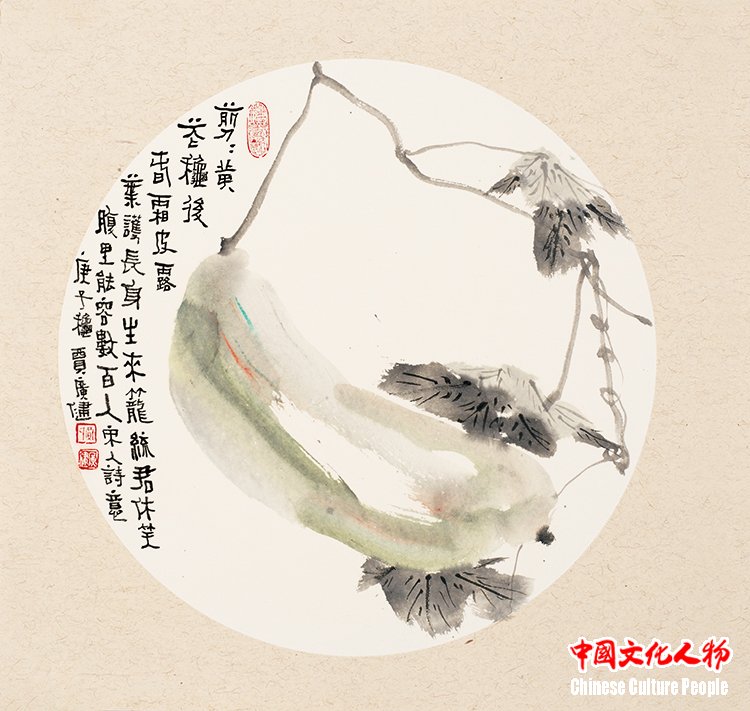 剪〻黄
花穐後
春霜皮露
葉護長身生來籠統君休笑
腹里能容數百人宋人詩意
庚子穐賈廣健
中国文化人物
Chinese Culture People